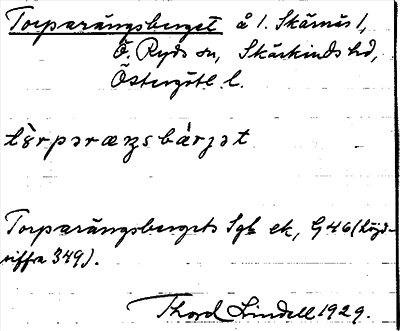 Torparängsberget å 1. Skärnäs 1,
Ö. Ryds sn, Skärkinds hd,
Östergötl. l.
tòrparæŋsbàrjət
Torparängsbergets Sgb ek, G46 (höjd-
siffra 349).
Thord Lindell 1929.